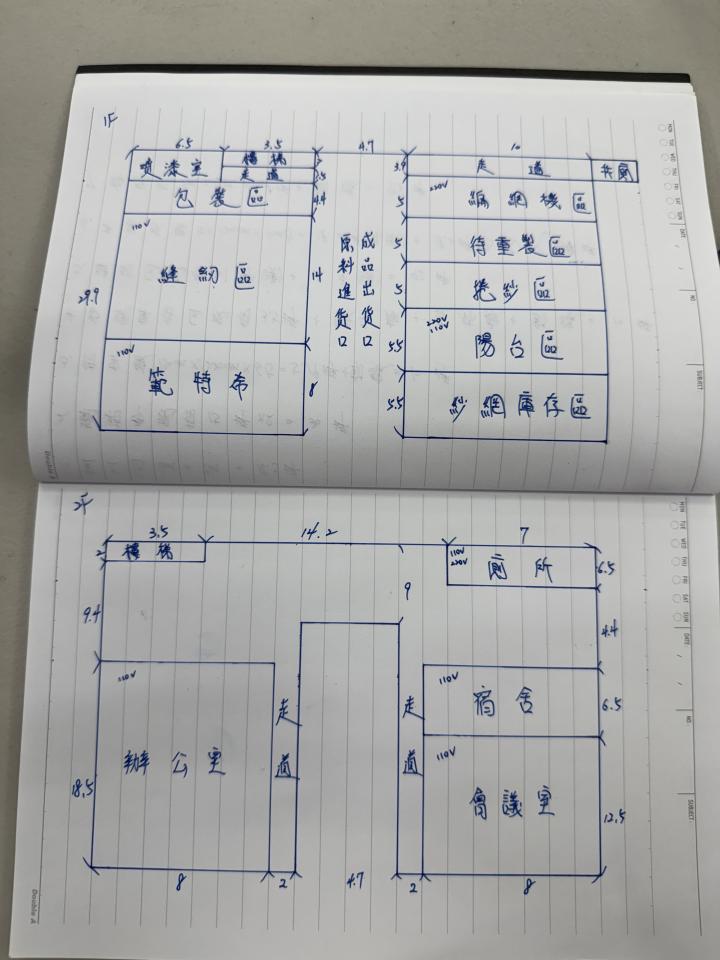 1F
6.5 3.5 4.7 10
噴漆室 樓梯 走道 3.9 走道
包裝區 4.4
220V 5 編網機區
110V 縫紉區 14
29.9
原料進貨口
成品出貨口
5 待重製區
5 捲紗區
220V 110V 5.5 陽台區
110V 範特希 8
5.5 紗網庫存區
Double A
MON TUE WED THU FRI SAT SUN
DATE / /
NO.
SUBJECT:
2F
3.5 14.2 7
2 樓梯
110V 220V 廁所 6.5
9
9.4 4.4
110V 辦公室 18.5
走道
走道
110V 宿舍 6.5
110V 會議室 12.5
8 2 4.7 2 8
Double A
MON TUE WED THU FRI SAT SUN
DATE / /
NO.
SUBJECT: